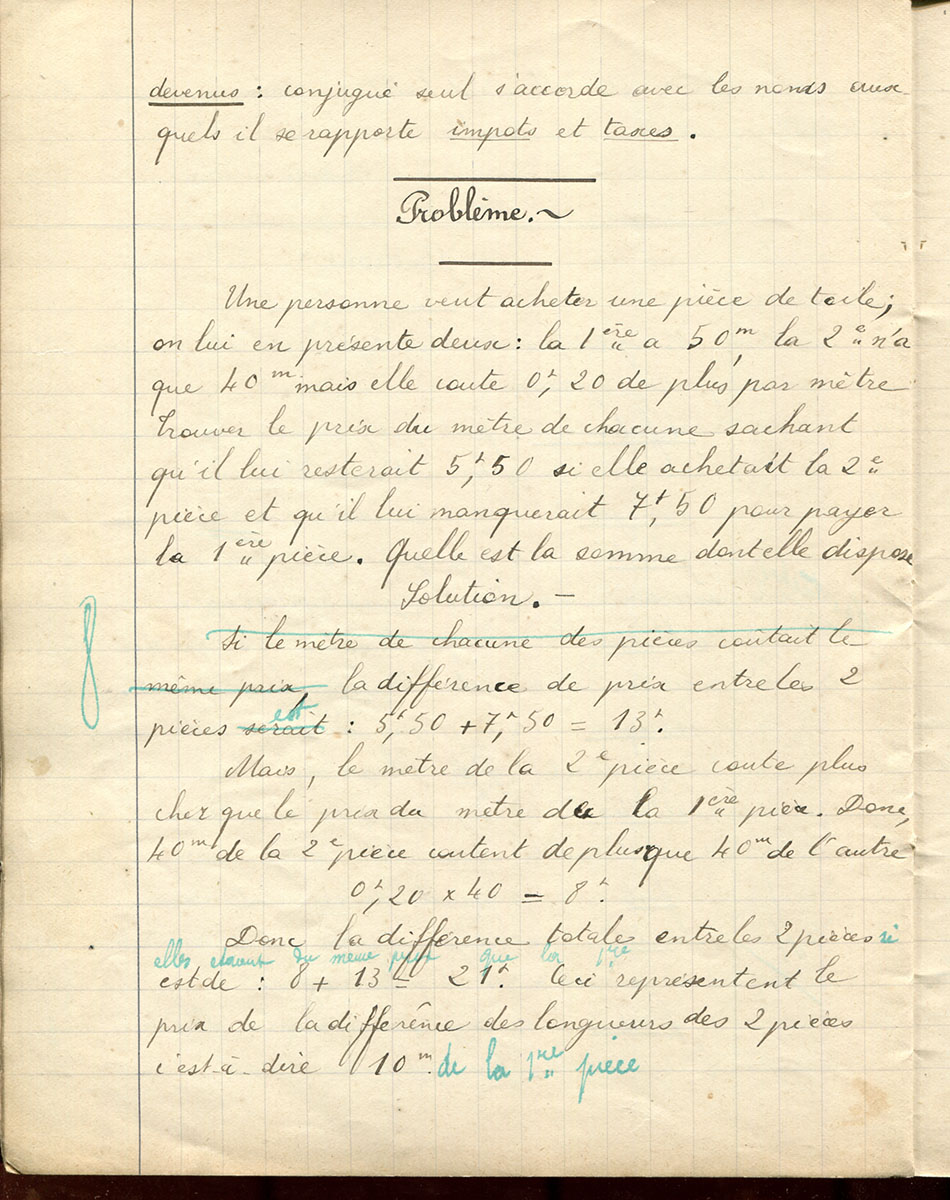 devenus : conjugué seul s'accorde avec les noms aux-
quels il se rapporte impots et taxes.
Problème.~
Une personne veut acheter une pièce de toile;
on lui en présente deux : la 1ère a 50m, la 2e n'a
que 40m mais elle coute 0f,20 de plus par mètre
Trouver le prix du mètre de chacune sachant
qu'il lui resterait 5f,50 si elle achetait la 2e
pièce et qu'il lui manquerait 7f,50 pour payer
la 1ère pièce. Quelle est la somme dont elle dispose
Solution.-
Si le mètre de chacune des pièces coutait le
même prix, la différence de prix entre les 2
est
pièces serait : 5f,50 + 7f,50 = 13f.
Mais, le mètre de la 2e pièce coute plus
cher que le prix du mètre de la 1ère pièce. Donc,
40m de la 2e pièce coutent de plus que 40m de l'autre
0f,20 x 40 = 8f.
Donc la différence totale entre les 2 pièces si
elles étaient du même prix que la 1ère
est de : 8 + 13 = 21f. Ceci représentent le
prix de la différence des longueurs des 2 pièces
c'est-à-dire 10m. de la 1ère pièce